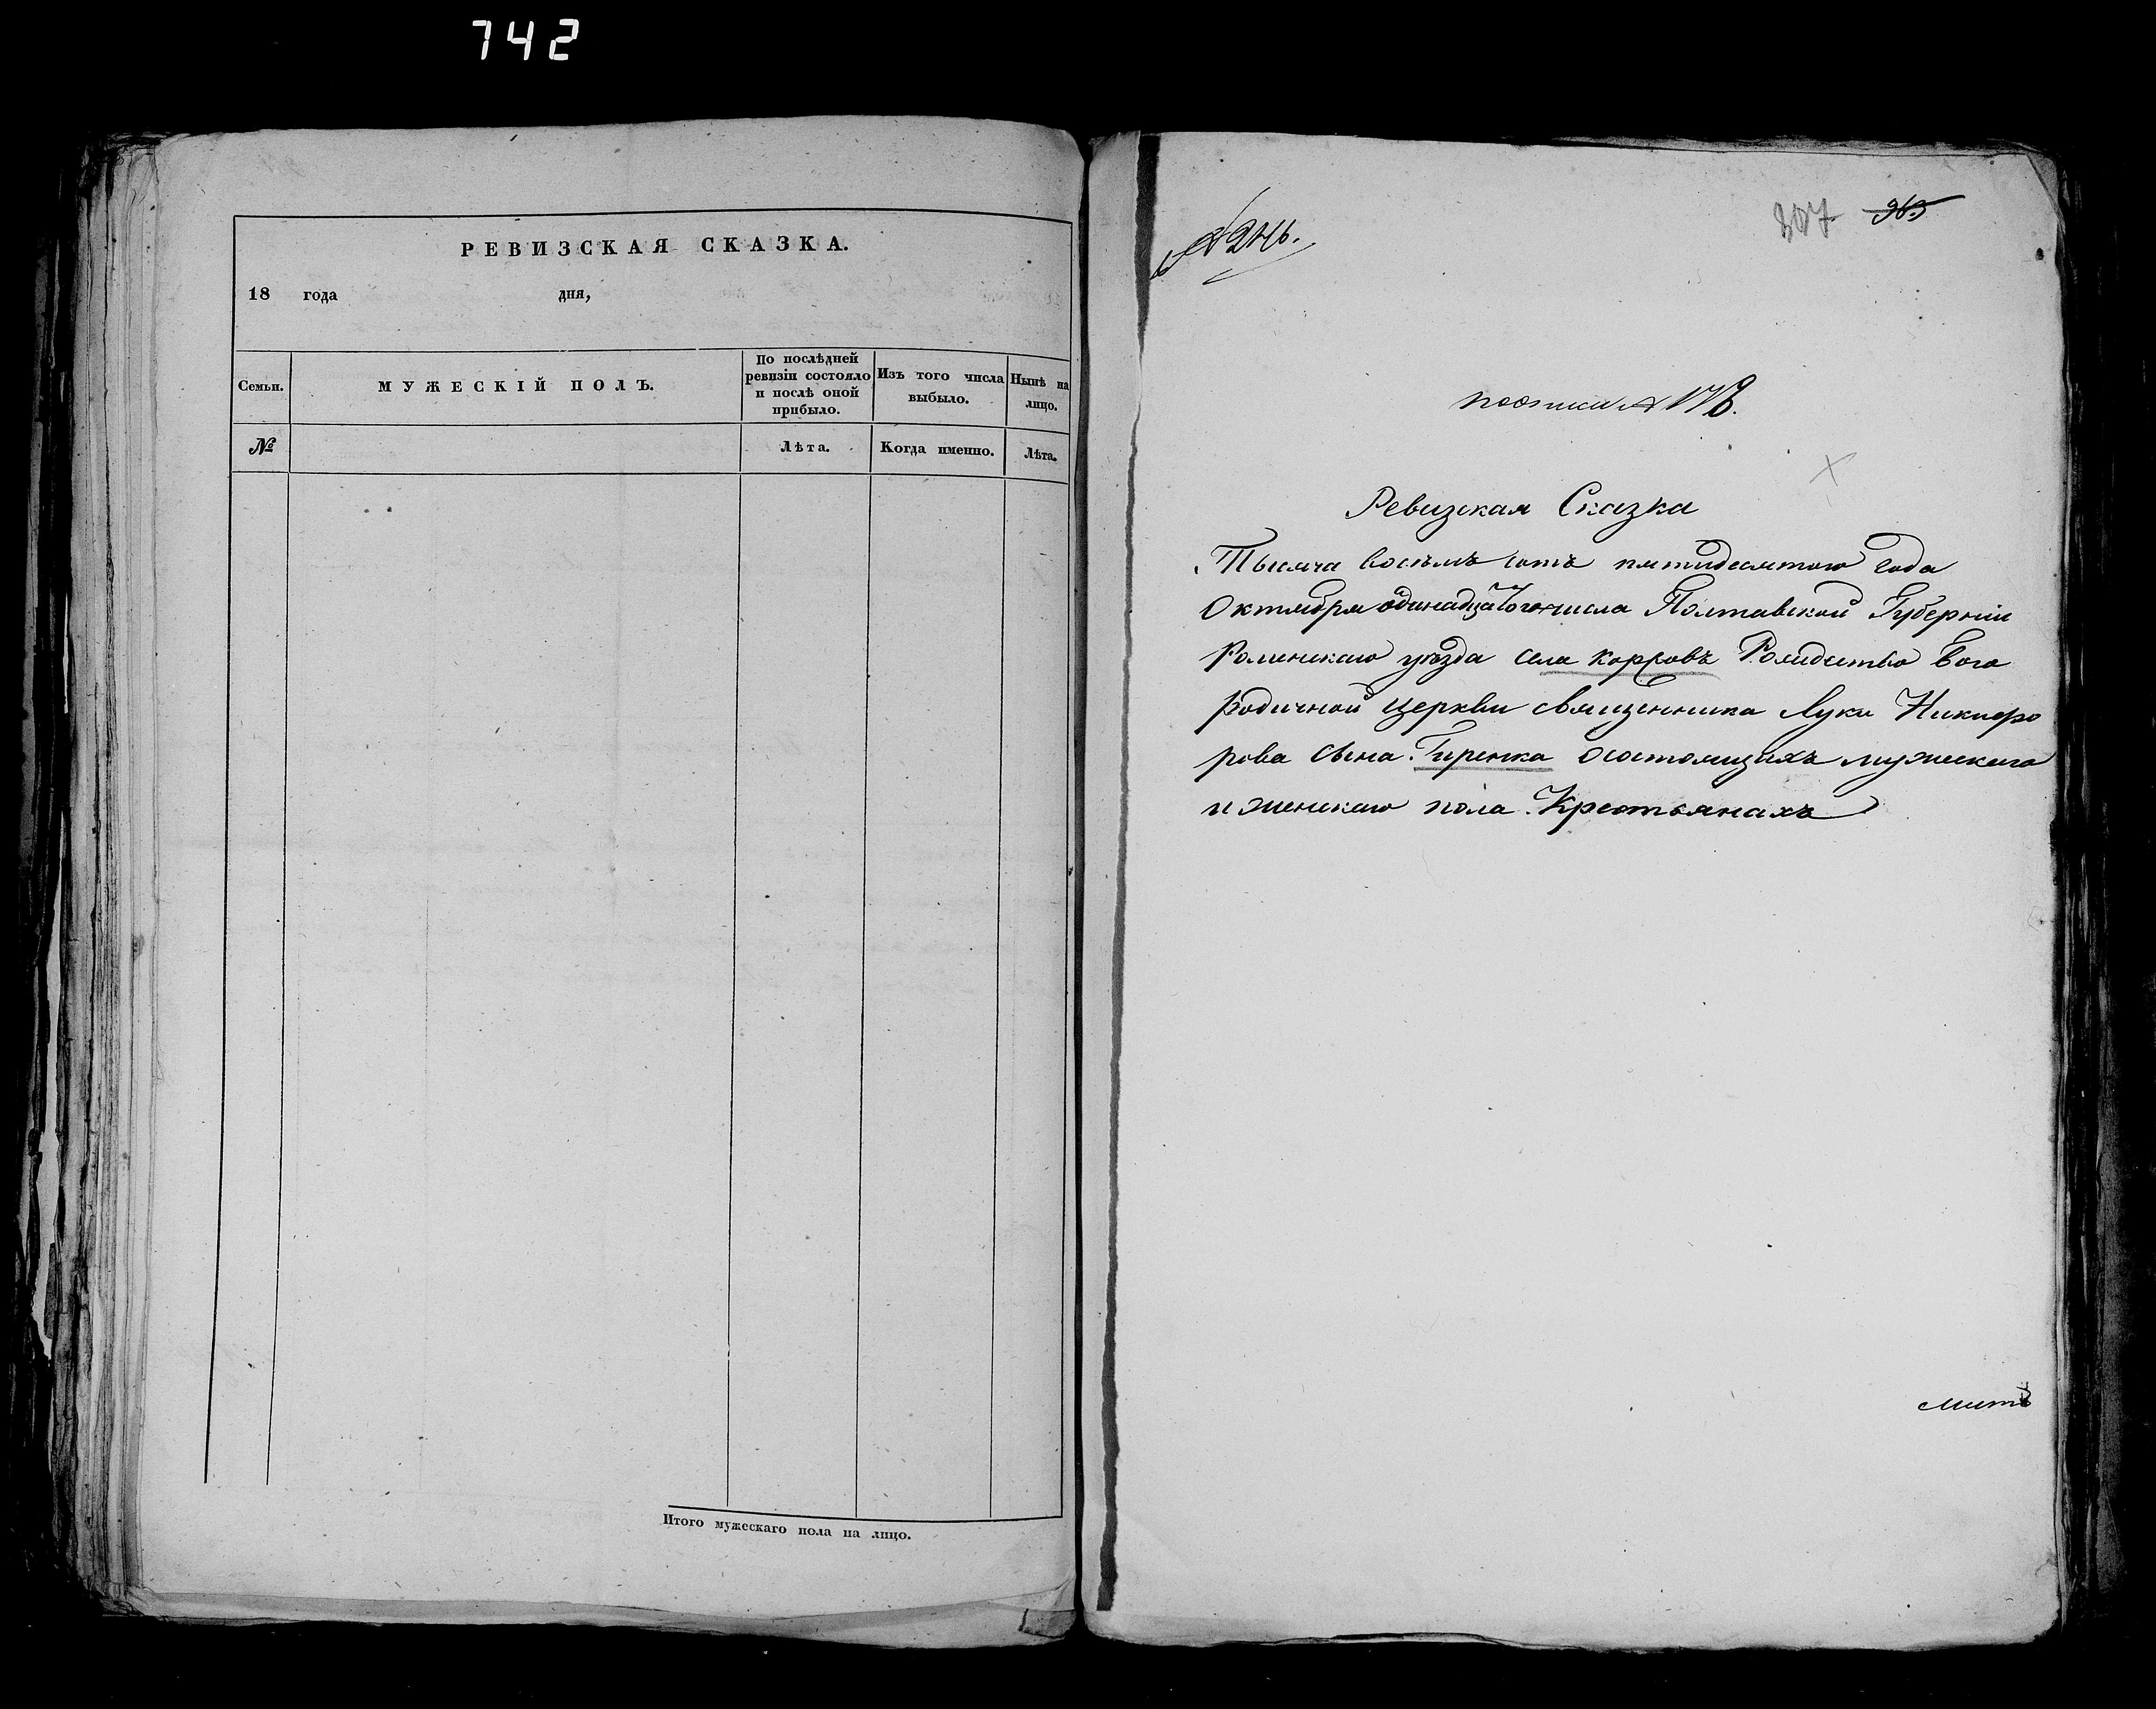 742
РЕВИЗСКАЯ СКАЗКА.
18 года дня,
Семьи.
МУЖЕСКІЙ ПОЛЪ.
По послѣдней
ревизіи состояло
и послѣ оной
прибыло.
Изъ того числа
выбыло.
Нынѣ на
лицо.
№
Лѣта.
Когда именно.
Лѣта.
Итого мужескаго пола на лицо.
807 963
Ревизская Сказка
Тысяча восѣмъ сотъ пятидесятого года
Октября одинадцатого числа Полтавской Губерніи
Роменскаго уѣзда села Коровъ Рождество Бого
родичной церкви священника Луки Никифо
рова сына Гиренка осостоящихъ мужескаго
и женскаго пола Крестьянахъ